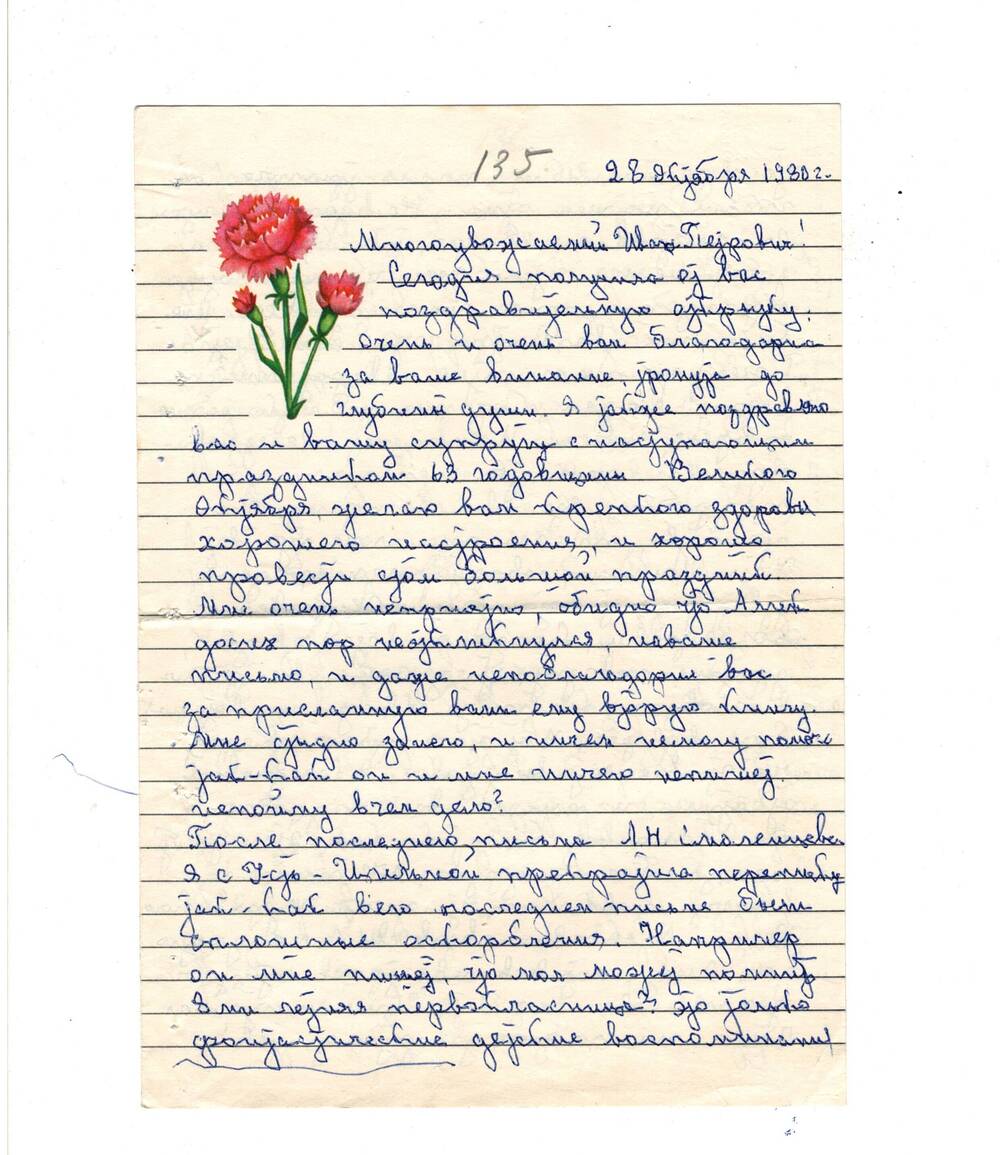 135
28 Октября 1980 г.
Многоуважаемый Иван Петрович!
Сегодня получила от вас
поздравительную открытку.
Очень и очень вам благодарна
за ваше внимание, тронута до
глубины души. Я также поздравляю
вас и вашу супругу с наступающим
праздником 63 годовщины Великого
Октября, желаю вам крепкого здоровья
хорошего настроения, и хорошо
провести этот большой праздник.
Мне очень неприятно, обидно что
досих пор неоткликнулся, наваше
письмо, и даже непоблагодарил вас
за присланную вами ему вторую книгу.
Мне стыдно занего, и ничем немогу помочь
так-как он и мне ничего непишет.
непойму вчем дело?
После последнего письма Л Н Смоленцева
Я с Усть-Цильмой прекратила переписку
так-как вего последнем письме были
сплошные оскорбления. Например
он мне пишет, что мол может помнить
8ми летняя первоклассница? это только
фантастические детские воспоминания